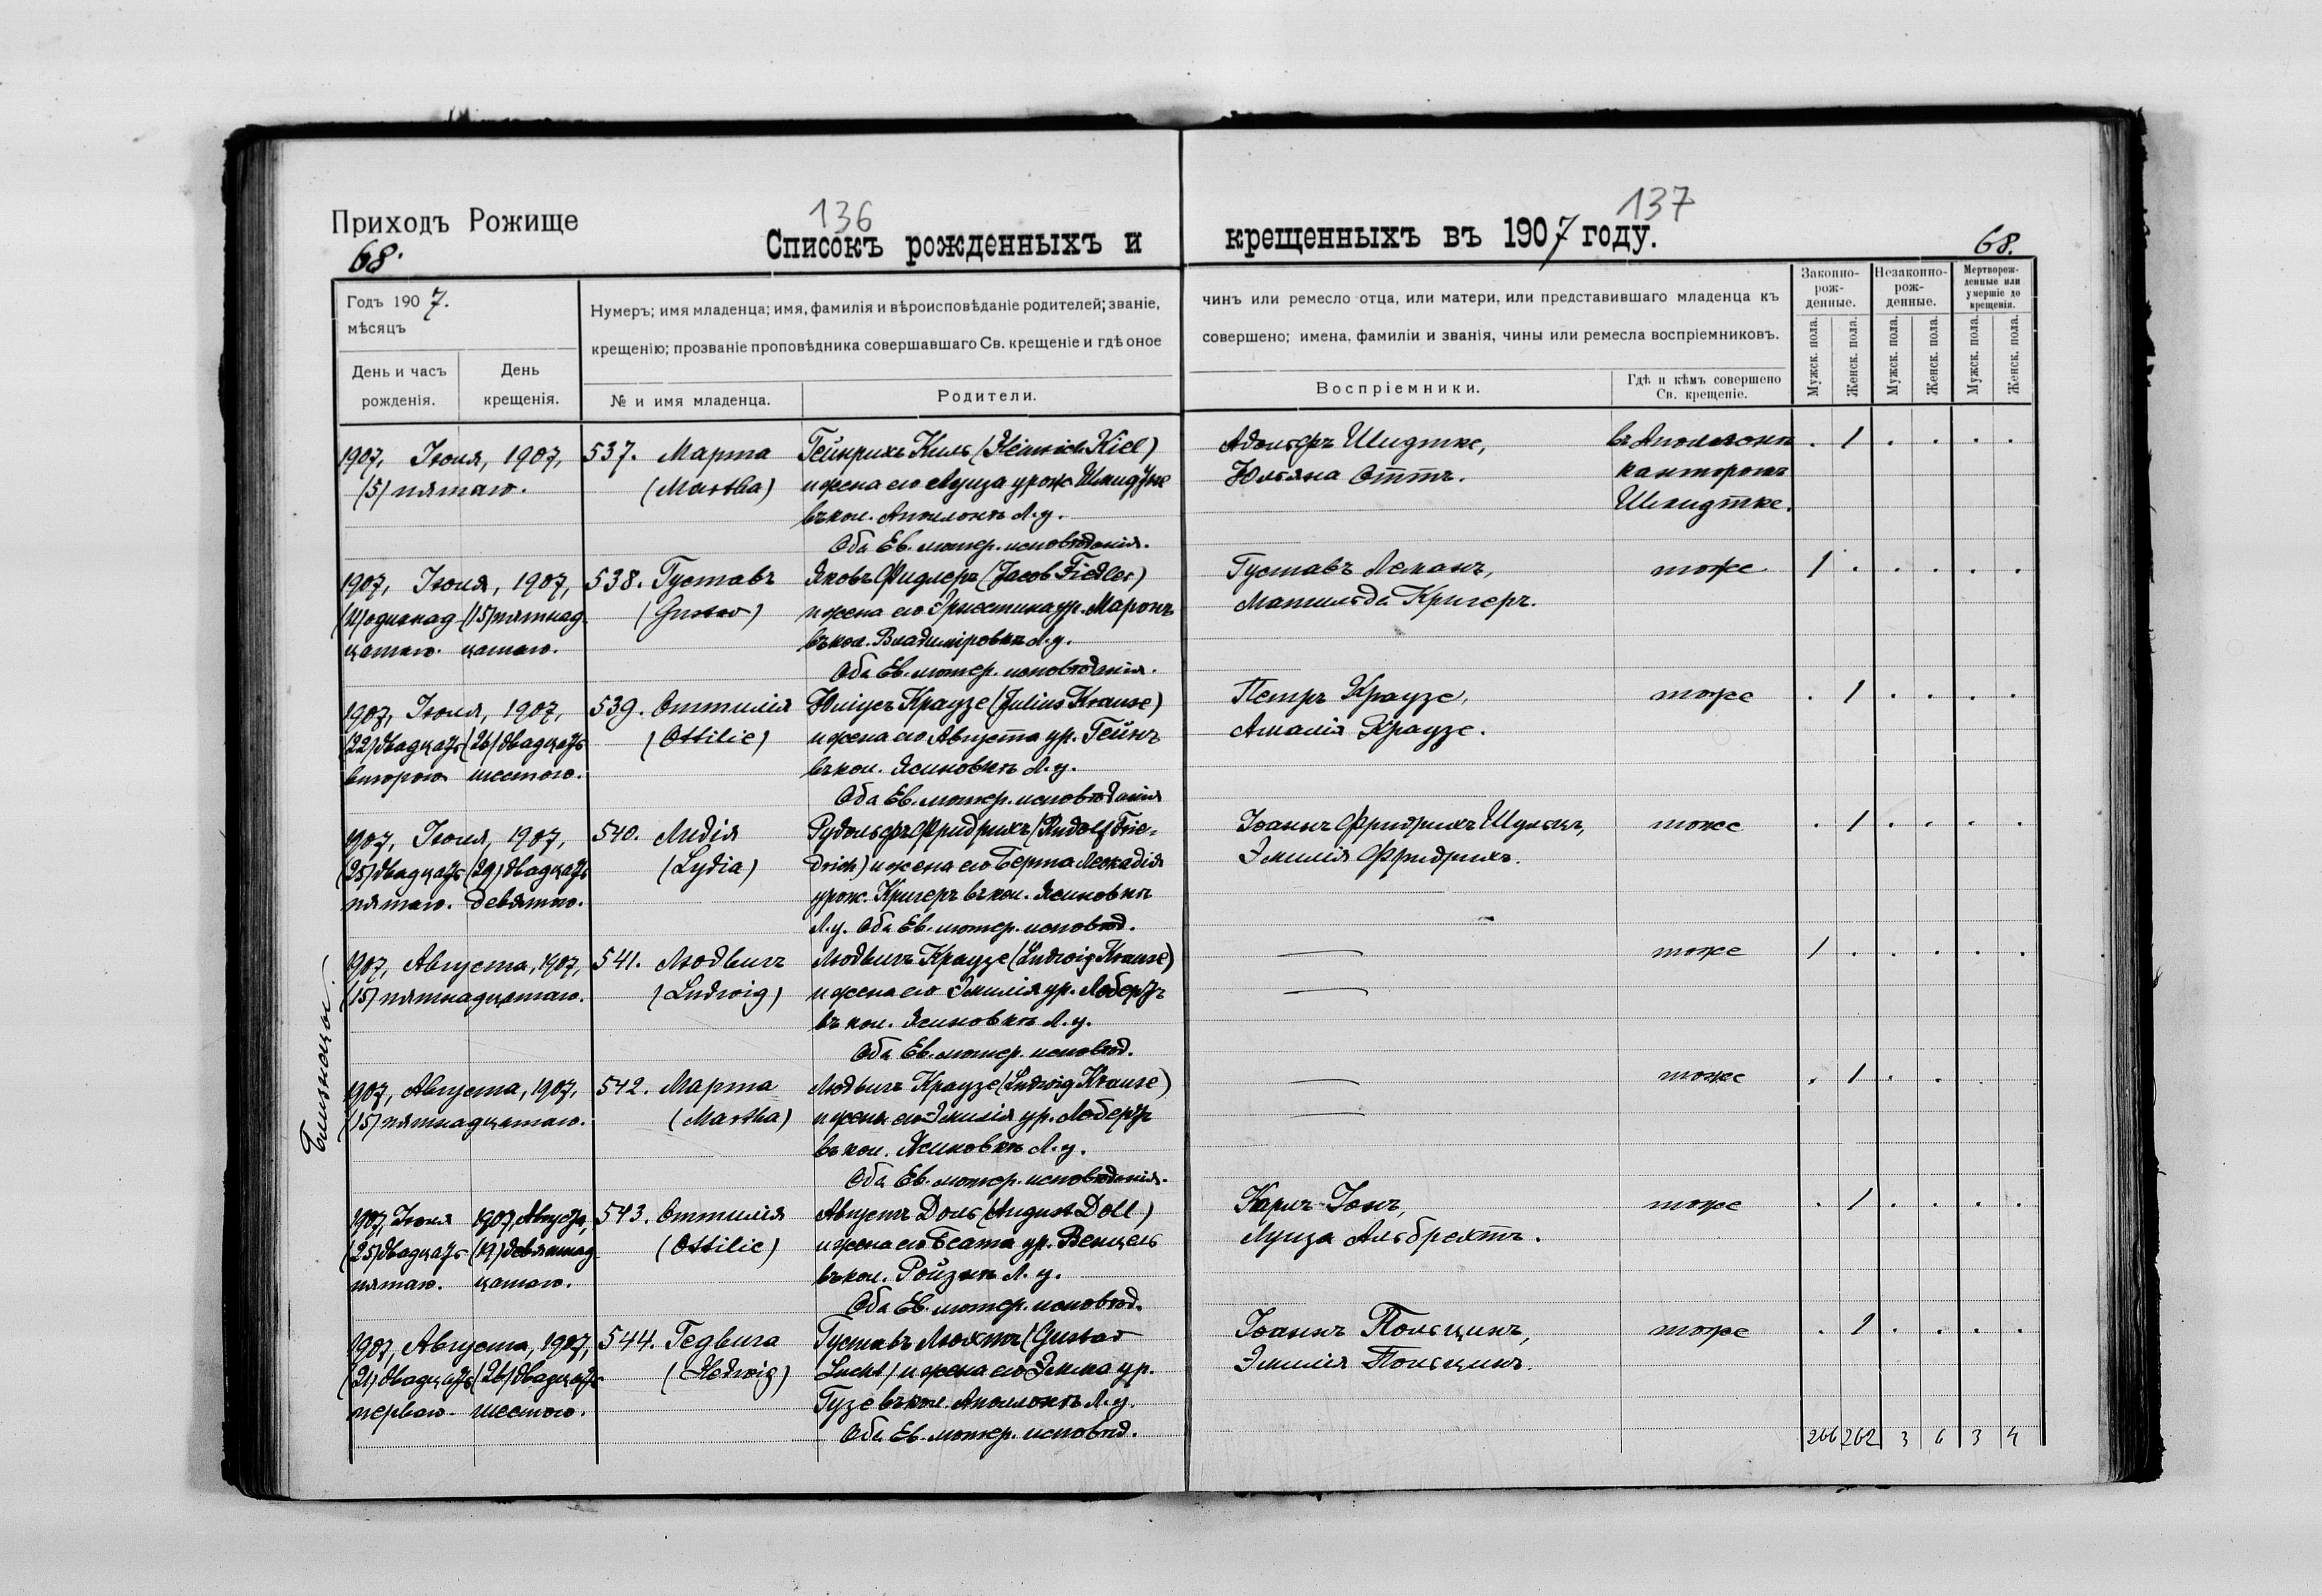 136
137
Приходъ Рожище
68.
Списокъ рожденныхъ и
крещенныхъ въ 1907 году.
68.
Годъ 1907.
мѣсяцъ
День и часъ рожденія.
День крещенія.
Нумеръ; имя младенца; имя, фамилія и вѣроисповѣданіе родителей; званіе,
крещенію; прозваніе проповѣдника совершавшаго Св. крещеніе и гдѣ оное
№ и имя младенца.
Родители.
чинъ или ремесло отца, или матери, или представившаго младенца къ
совершено; имена, фамиліи и званія, чины или ремесла воспріемниковъ.
Воспріемники.
Гдѣ и кѣмъ совершено
Св. крещеніе.
Законно-
рож-
денные.
Незаконно-
рож-
денные.
Мертворож-
денные или
умершіе до
крещенія.
Мужск. пола.
Женск. пола.
Мужск. пола.
Женск. пола.
Мужск. пола.
Женск. пола.
1907, Іюля, 1907, 537. Марта Гейнрихъ Киль (Heinrich Kiel) Адольфъ Шидтке, 1
(5) пятаго. (Martha) и жена его Луиза урож. Юльяна Оттъ. канторомъ
въ кол. Л. у. Шмидтке.
Оба Ев. лютер. исповѣданія.
1907, Іюля, 1907, 538. Густавъ Яковъ Фидлеръ (Jacob Fiedler) Густавъ тоже 1
(11) одиннад- (15) пятнад- (Gustav) и жена его Эрнестина ур. Маронъ Матильда Кригеръ.
цатаго. цатаго. въ кол. Владиміровкѣ Л. у.
Оба Ев. лютер. исповѣданія.
1907, Іюля, 1907, 539. Оттилія Юліусъ Краузе (Julius Krause) Петръ Краузе, тоже 1
(22) двадцать (26) двадцать (Ottilie) и жена его Августа ур. Гейнъ Амалія Краузе.
второго. шестого. въ кол. Ясиновкѣ Л. у.
Оба Ев. лютер. исповѣданія
1907, Іюля, 1907, 540. Лидія Рудольфъ Фридрихъ (Rudolf Frie- Іоаннъ Фридрихъ Шульцъ, тоже 1
(25) двадцать (29) двадцать (Lydia) drich) и жена его Берта Леокадія Эмилія Фридрихъ.
пятаго. девятаго. урож. Кригеръ въ кол. Ясиновкѣ
Л. у. Оба Ев. лютер. исповѣд.
Близнецы.
1907, Августа, 1907, 541. Людвигъ Людвигъ Краузе (Ludwig Krause) — тоже 1
(15) пятнадцатаго. (Ludwig) и жена его Эмилія ур. —
въ кол. Ясиновкѣ Л. у.
Оба Ев. лютер. исповѣд.
1907, Августа, 1907, 542. Марта Людвигъ Краузе (Ludwig Krause) — тоже 1
(15) пятнадцатаго. (Martha) и жена его Эмилія ур. —
въ кол. Ясиновкѣ Л. у.
Оба Ев. лютер. исповѣданія.
1907, Іюля 1907, Августа, 543. Оттилія Августъ Доль (August Doll) Карлъ Іонъ, тоже 1
(25) двадцать (19) девятнад- (Ottilie) и жена его Беата ур. Венцель Луиза Альбрехтъ.
пятаго. цатаго. въ кол. Л. у.
Оба Ев. лютер. исповѣд.
1907, Августа, 1907, 544. Гедвига Густавъ Люхтъ (Gustav Іоаннъ Польцинъ, тоже 1
(21) двадцать (26) двадцать (Hedwig) Lucht) и жена его Эмма ур. Эмилія Польцинъ.
перваго. шестого. Гузе въ кол. Л. у.
Оба Ев. лютер. исповѣд.
266 262 3 6 3 4